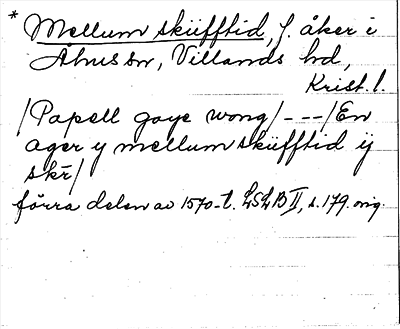 * Mellum sküfftid, f. åker i
Åhus sn, Villands hd,
Krist. l.
/Papell goye wong/ - - - /En
ager y mellum sküfftid ij
skr̄/
förra delen av 1570-t. LSLB II, s. 179. orig.